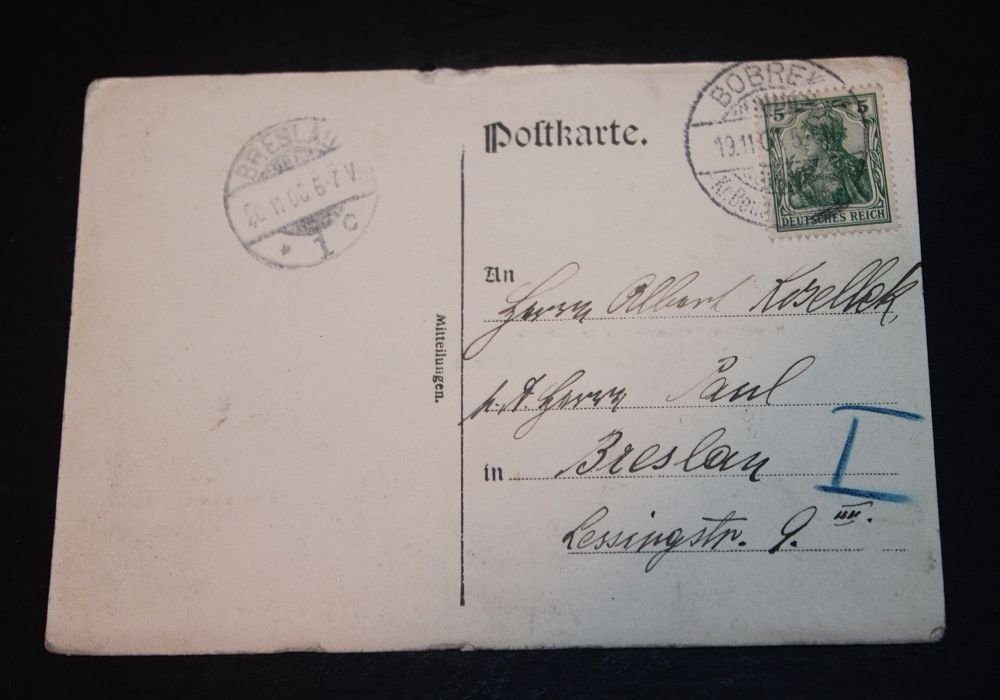 BRESLAU
11.06.6-7V.
* 1 c
Postkarte.
BOBREK
19.11.0
5
DEUTSCHES REICH
An
Herrn Albert Kosellek
p. A. Herrn Paul
in Breslau
I
Lessingstr. 9. III.
Mitteilungen.